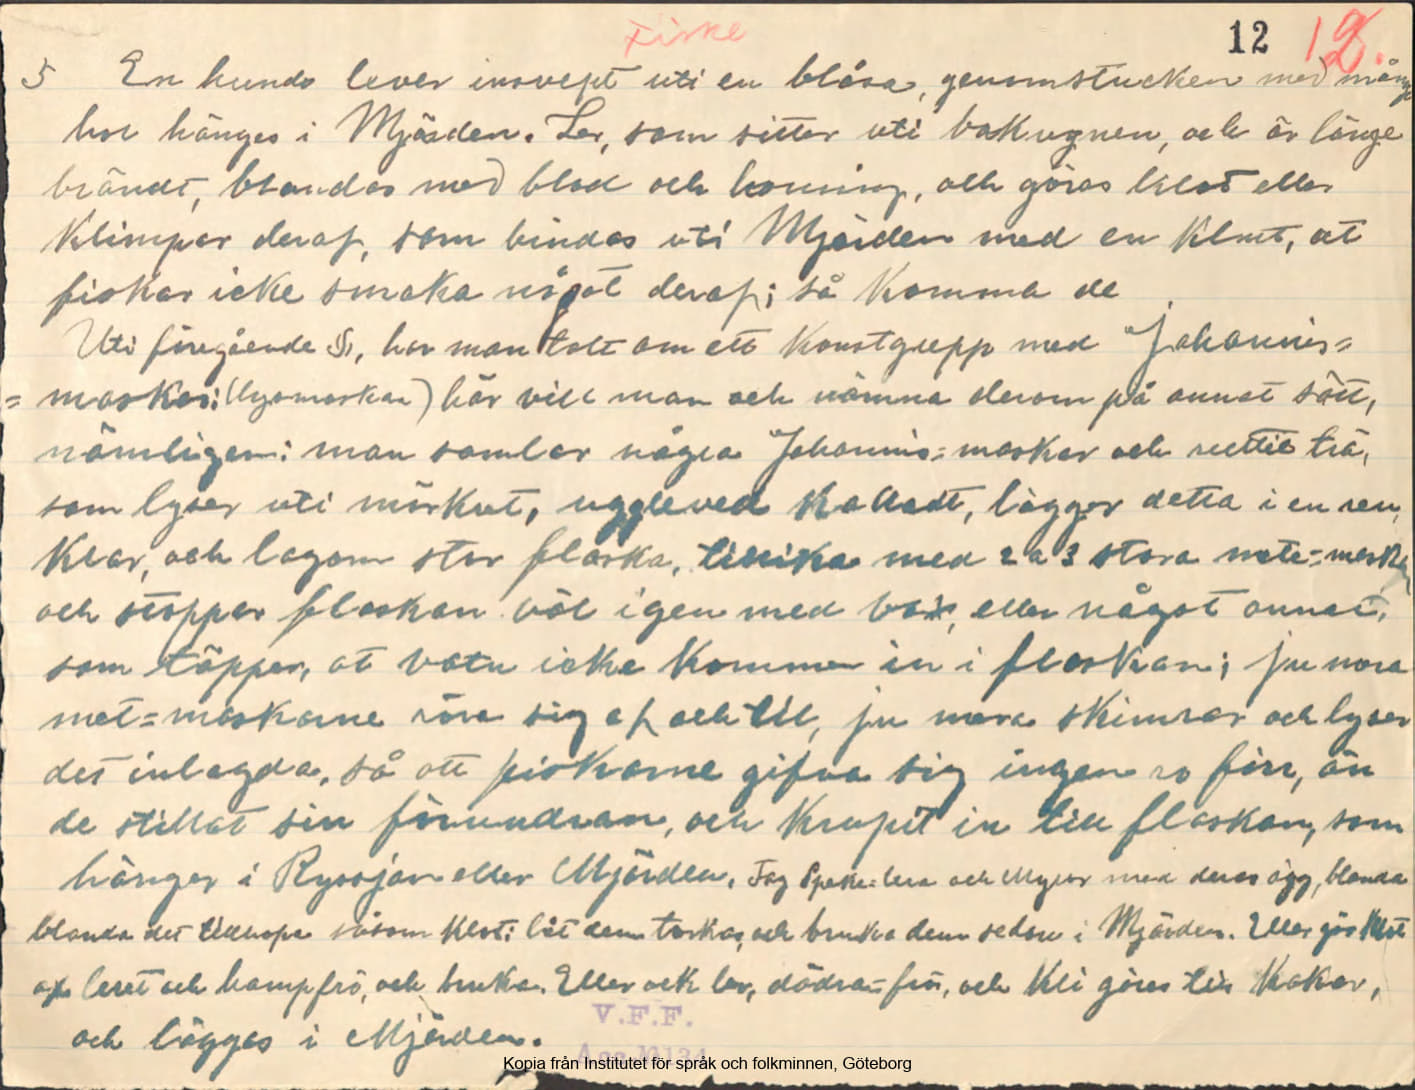 Fiske
12 12.
5 En hunds lever insvept uti en blåsa, genomstucken med många
hol hänges i Mjärden. Ler, som sitter uti bakugnen, och är länge
brändt, blandas med blod och honning, och göres klot eller
Klimpar deraf, som bindas uti Mjärden med en klut, at
fiskar icke smaka något deraf; så komma de
Uti föregående §, har man talt om ett konstgrepp med "Johannis=
=maskar: (lysmaskar) här vill man och nämna derom på annat sätt,
nämligen: man samlar några "Johannis=maskar och ruttit trä,
som lyser uti mörkret, uggleved kalladt, lägger detta i en ren,
Klar, och lagom stor flaska, tillika med 2 a 3 stora mete=maskar
och stoppar flaskan väl igen med vax, eller något annat,
som täpper, at vatn icke kommer in i flaskan; ju mera
met=maskarne röra sig af och till, ju mera skimrar och lyser
det inlagda, så att fiskarne gifva sig ingen ro förr, än
de stillat sin förundran, och krupit in till flaskan, som
hänger i Ryssjan eller Mjärden. Tag och Myror med deras ägg, blanda
blanda det tillhopa såsom klot; låt dem torka, och bruka dem sedan i Mjärden. Eller gör klot
af leret och hampfrö, och bruka. Eller ock ler, dådra=frö, och kli göres till kakor,
och lägges i Mjärden.
V.F.F.
Acc.
Kopia från Institutet för språk och folkminnen, Göteborg